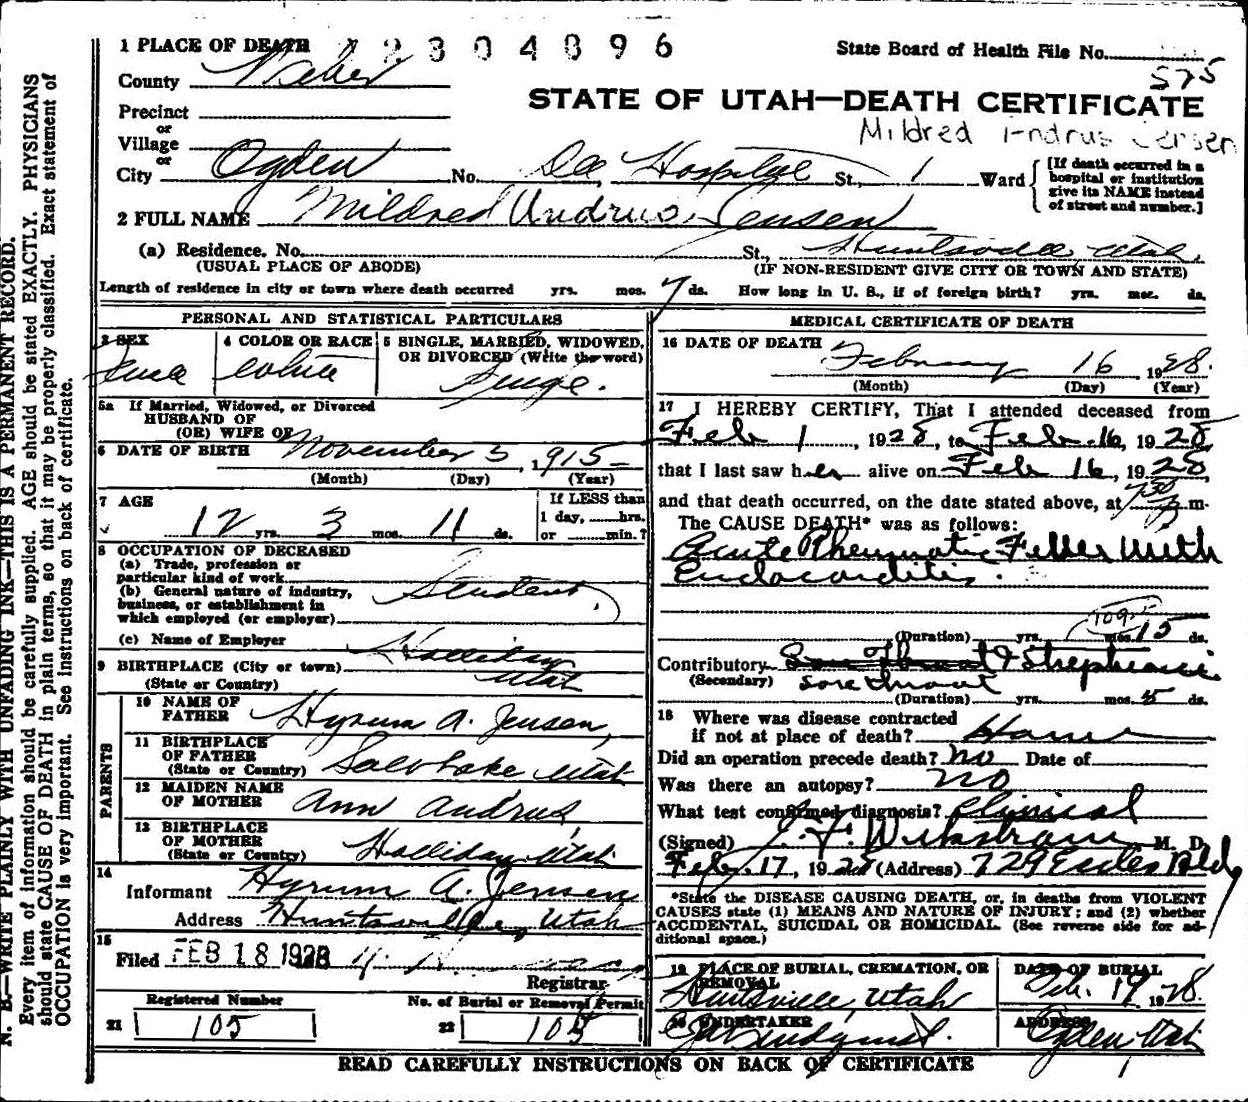 1 PLACE OF DEATH
2304896
State Board of Health File No.
575
County Weber
STATE OF UTAH—DEATH CERTIFICATE
Mildred Andrus Jensen
Precinct
or
Village
or
City Ogden No. Dee Hospital St., 1 Ward
[If death occurred in a
hospital or institution
give its NAME instead
of street and number.]
2 FULL NAME Mildred Andrus Jensen
(a) Residence. No. St., Huntsville, Utah.
(USUAL PLACE OF ABODE) (IF NON-RESIDENT GIVE CITY OR TOWN AND STATE)
Length of residence in city or town where death occurred yrs. mos. 7 ds. How long in U. S., if of foreign birth? yrs. mos. ds.
PERSONAL AND STATISTICAL PARTICULARS
3 SEX
4 COLOR OR RACE
White
5 SINGLE, MARRIED, WIDOWED,
OR DIVORCED (Write the word)
Single.
5a If Married, Widowed, or Divorced
HUSBAND OF
(OR) WIFE OF
6 DATE OF BIRTH November 5, 1915
(Month) (Day) (Year)
7 AGE
12 yrs. 3 mos. 11 ds.
If LESS than
1 day, hrs.
or min.?
8 OCCUPATION OF DECEASED
(a) Trade, profession or
particular kind of work
(b) General nature of industry,
business, or establishment in
which employed (or employer)
Student
(c) Name of Employer
9 BIRTHPLACE (City or town) Holliday
(State or Country) Utah
PARENTS
10 NAME OF
FATHER Hyrum A. Jensen,
11 BIRTHPLACE
OF FATHER
(State or Country) Salt Lake Utah
12 MAIDEN NAME
OF MOTHER Ann Andrus,
13 BIRTHPLACE
OF MOTHER
(State or Country) Holliday, Utah
14
Informant Hyrum A. Jensen
Address Huntsville, Utah
15
Filed FEB 18 1928
Registrar
Registered Number
21 105
No. of Burial or Removal Permit
22 105
MEDICAL CERTIFICATE OF DEATH
16 DATE OF DEATH
February 16 1928.
(Month) (Day) (Year)
17 I HEREBY CERTIFY, That I attended deceased from
Feb 1, 1928, to Feb. 16, 1928,
that I last saw her alive on Feb 16, 1928,
and that death occurred, on the date stated above, at 7:30 p m.
The CAUSE DEATH* was as follows:
Acute Rheumatic Fever with
Endocarditis.
(Duration) yrs. mos. 15 ds.
Contributory Sore Throat
(Secondary) sore throat
(Duration) yrs. mos. 5 ds.
18 Where was disease contracted
if not at place of death? Home
Did an operation precede death? no Date of
Was there an autopsy? no
What test confirmed diagnosis? Clinical
(Signed) M. D.
Feb. 17, 1928 (Address) 729 Eccles Bldg
*State the DISEASE CAUSING DEATH, or, in deaths from VIOLENT
CAUSES state (1) MEANS AND NATURE OF INJURY; and (2) whether
ACCIDENTAL, SUICIDAL OR HOMICIDAL. (See reverse side for ad-
ditional space.)
19 PLACE OF BURIAL, CREMATION, OR
REMOVAL
Huntsville, Utah
DATE OF BURIAL
Feb. 19 1928.
20 UNDERTAKER
ADDRESS
Ogden, Utah
READ CAREFULLY INSTRUCTIONS ON BACK OF CERTIFICATE
N. B.—WRITE PLAINLY WITH UNFADING INK—THIS IS A PERMANENT RECORD.
Every item of information should be carefully supplied. AGE should be stated EXACTLY. PHYSICIANS
should state CAUSE OF DEATH in plain terms, so that it may be properly classified. Exact statement of
OCCUPATION is very important. See instructions on back of certificate.